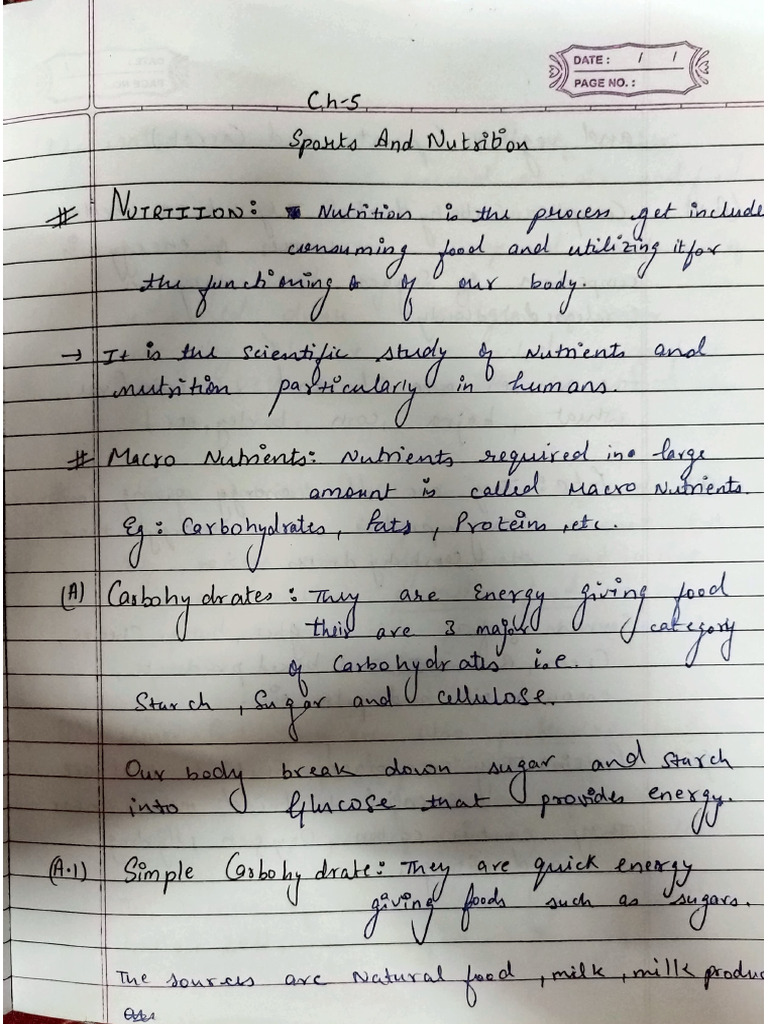 DATE: / /
PAGE NO.:
Ch-5
Sports And Nutrition
# NUTRITION: Nutrition is the process get include
consuming food and utilizing it for
the functioning of our body.
→ It is the scientific study of Nutrients and
nutrition particularly in humans.
# Macro Nutrients: Nutrients required in large
amount is called Macro Nutrients.
Eg: Carbohydrates, Fats, Proteins, etc.
(A) Carbohydrates: They are Energy giving food
their are 3 major category
of Carbohydrates i.e.
Starch, Sugar and cellulose.
Our body break down sugar and starch
into Glucose that provides energy.
(A.1) Simple Carbohydrate: They are quick energy
giving foods such as sugars.
The sources are Natural food, milk, milk produc